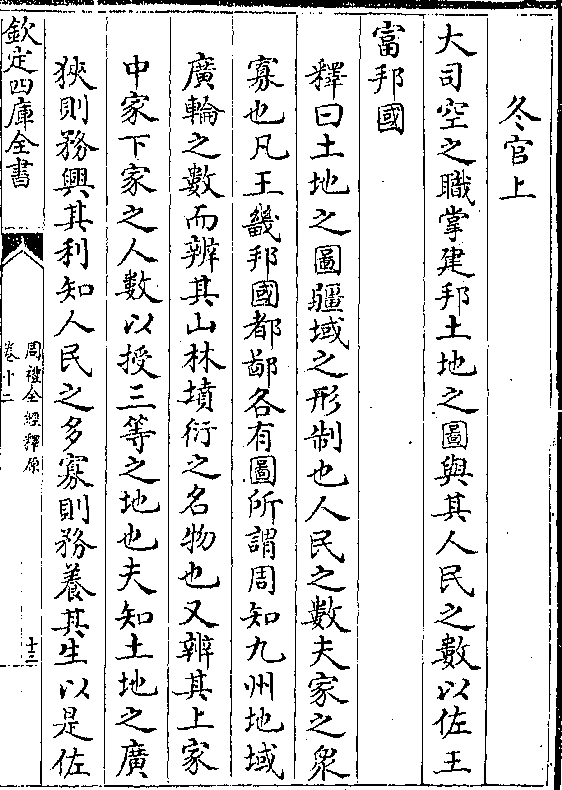 冬官上
大司空之職掌建邦土地之圖與其人民之數以佐王
富邦國
釋曰土地之圖疆域之形制也人民之數夫家之衆
寡也凡王畿邦國都鄙各有圖所謂周知九州地域
廣輪之數而辨其山林墳衍之名物也又辨其上家
中家下家之人數以授三等之地也夫知土地之廣
狹則務興其利知人民之多寡則務養其生以是佐
欽定四庫全書
周禮全經釋原
卷十二
十三